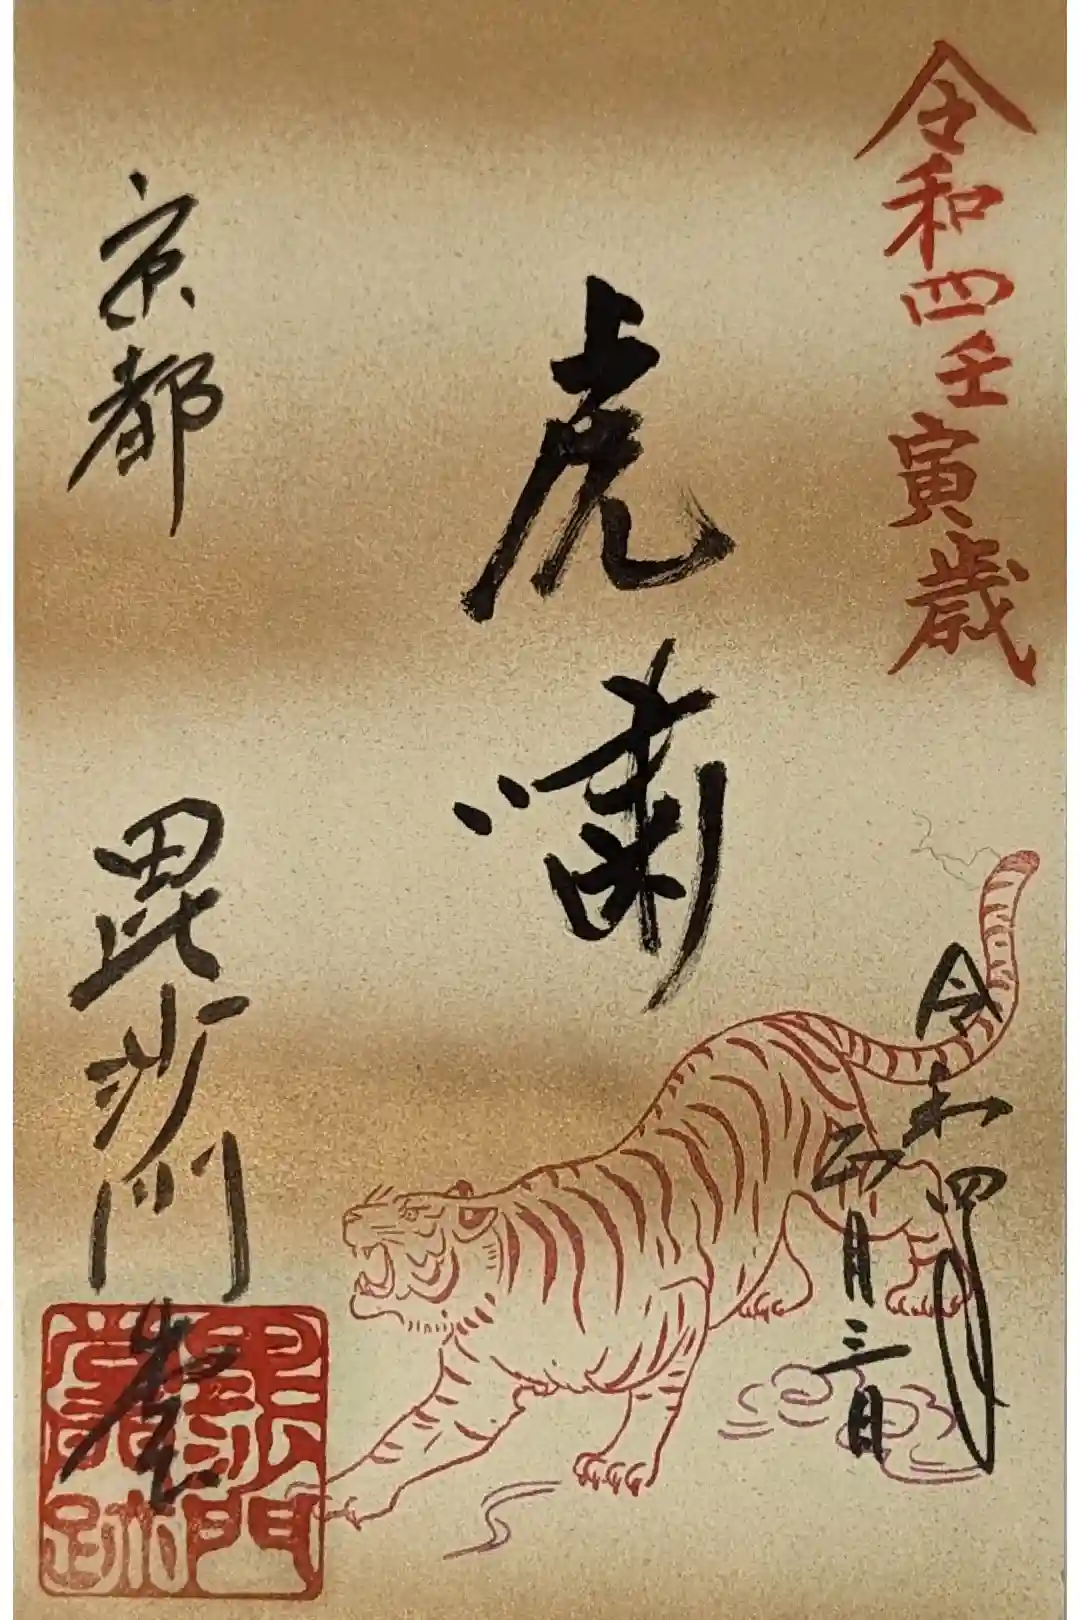 令和四壬寅歳
令和四
正月三日
虎嘯
京都
毘沙門堂
毘沙門
堂門跡